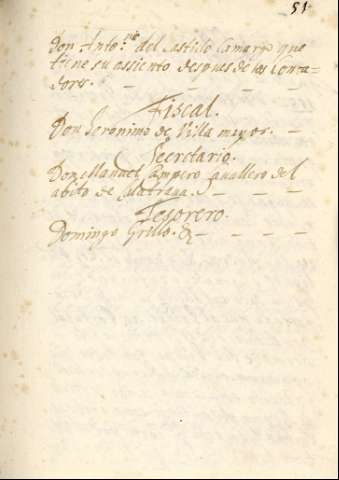 51
Don Anto.nio del Castillo Camargo que
tiene su assiento despues de los Conta=
dores.
Fiscal.
Don Geronimo de Villa mayor.
Secretario.
Don Manuel Campero cauallero del
abito de Calatraua.
Tesorero.
Domingo Grillo. &